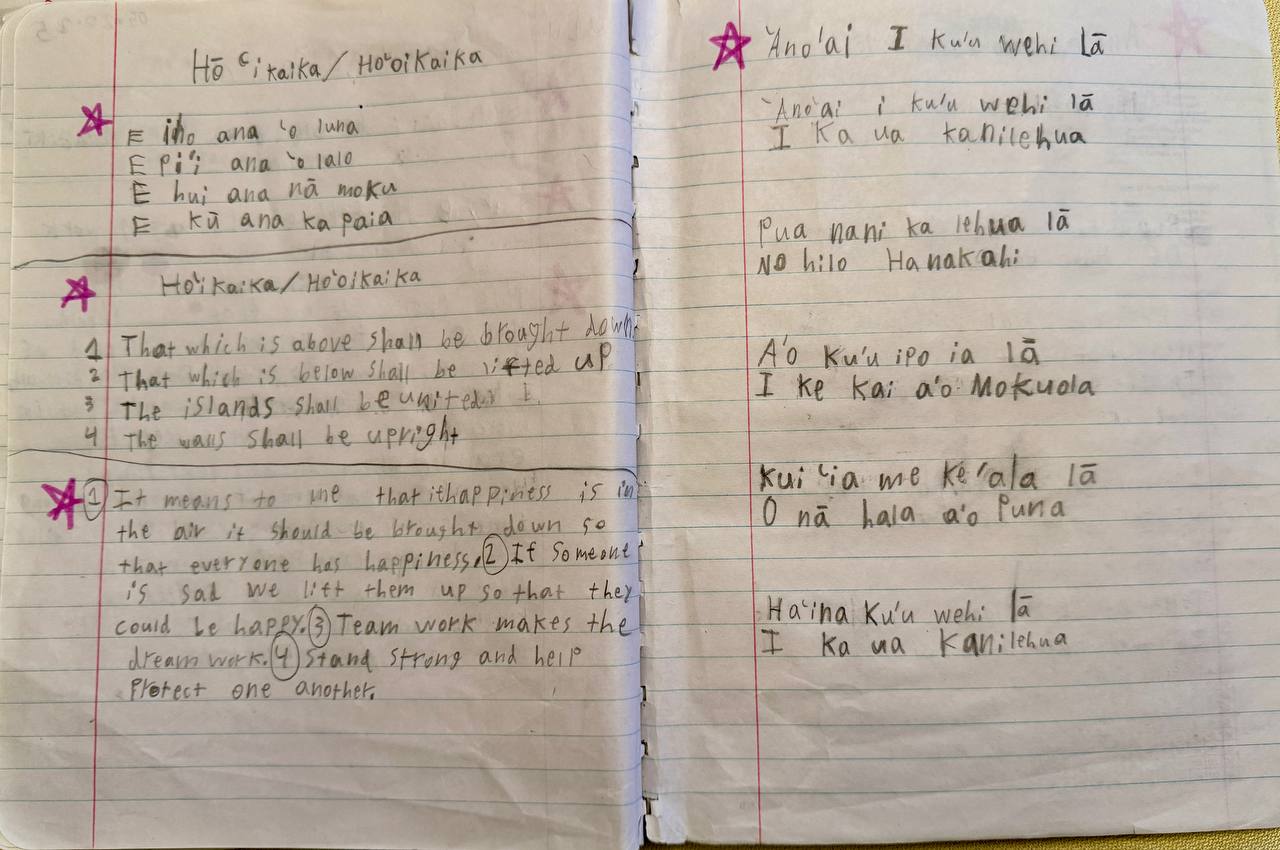 Hō ʿikaika / Ho'oikaika
E iho ana 'o luna
E pi'i ana 'o lalo
E hui ana nā moku
E kū ana ka paia
Ho'ikaika / Ho'oikaika
1 That which is above shall be brought down
2 That which is below shall be lifted up
3 The islands shall be united
4 The walls shall be upright
1 It means to me that ithappiness is in
the air it should be brought down so
that everyone has happiness. 2 If someone
is sad we lift them up so that they
could be happy. 3 Team work makes the
dream work. 4 Stand strong and help
Protect one another.
'Ano'ai I ku'u wehi lā
'Ano'ai i ku'u wehi lā
I ka ua kanilehua
Pua nani ka lehua lā
No hilo Hanakahi
A'o ku'u ipo ia lā
I ke kai a'o Mokuola
Kui 'ia me ke 'ala lā
O nā hala a'o Puna
Ha'ina Ku'u wehi lā
I ka ua Kanilehua